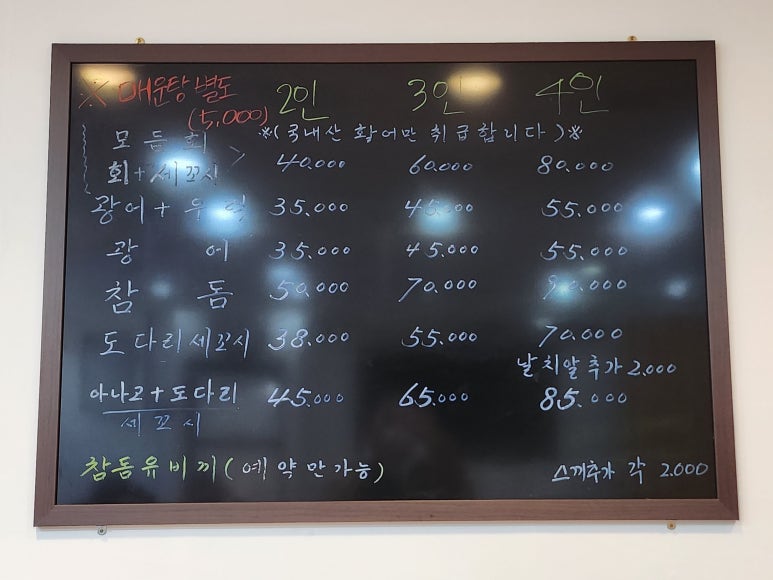 ※ 매운탕 별도 2인 3인 4인
(5,000)
※(국내산 활어만 취급합니다)※
모듬회
회+세꼬시 40.000 60.000 80.000
광어+우럭 35.000 45.000 55.000
광어 35.000 45.000 55.000
참돔 50.000 70.000 90.000
도다리세꼬시 38.000 55.000 70.000
날치알추가 2.000
아나고+도다리 45.000 65.000 85.000
세꼬시
참돔유비끼(예약만가능)
스끼추가 각 2.000